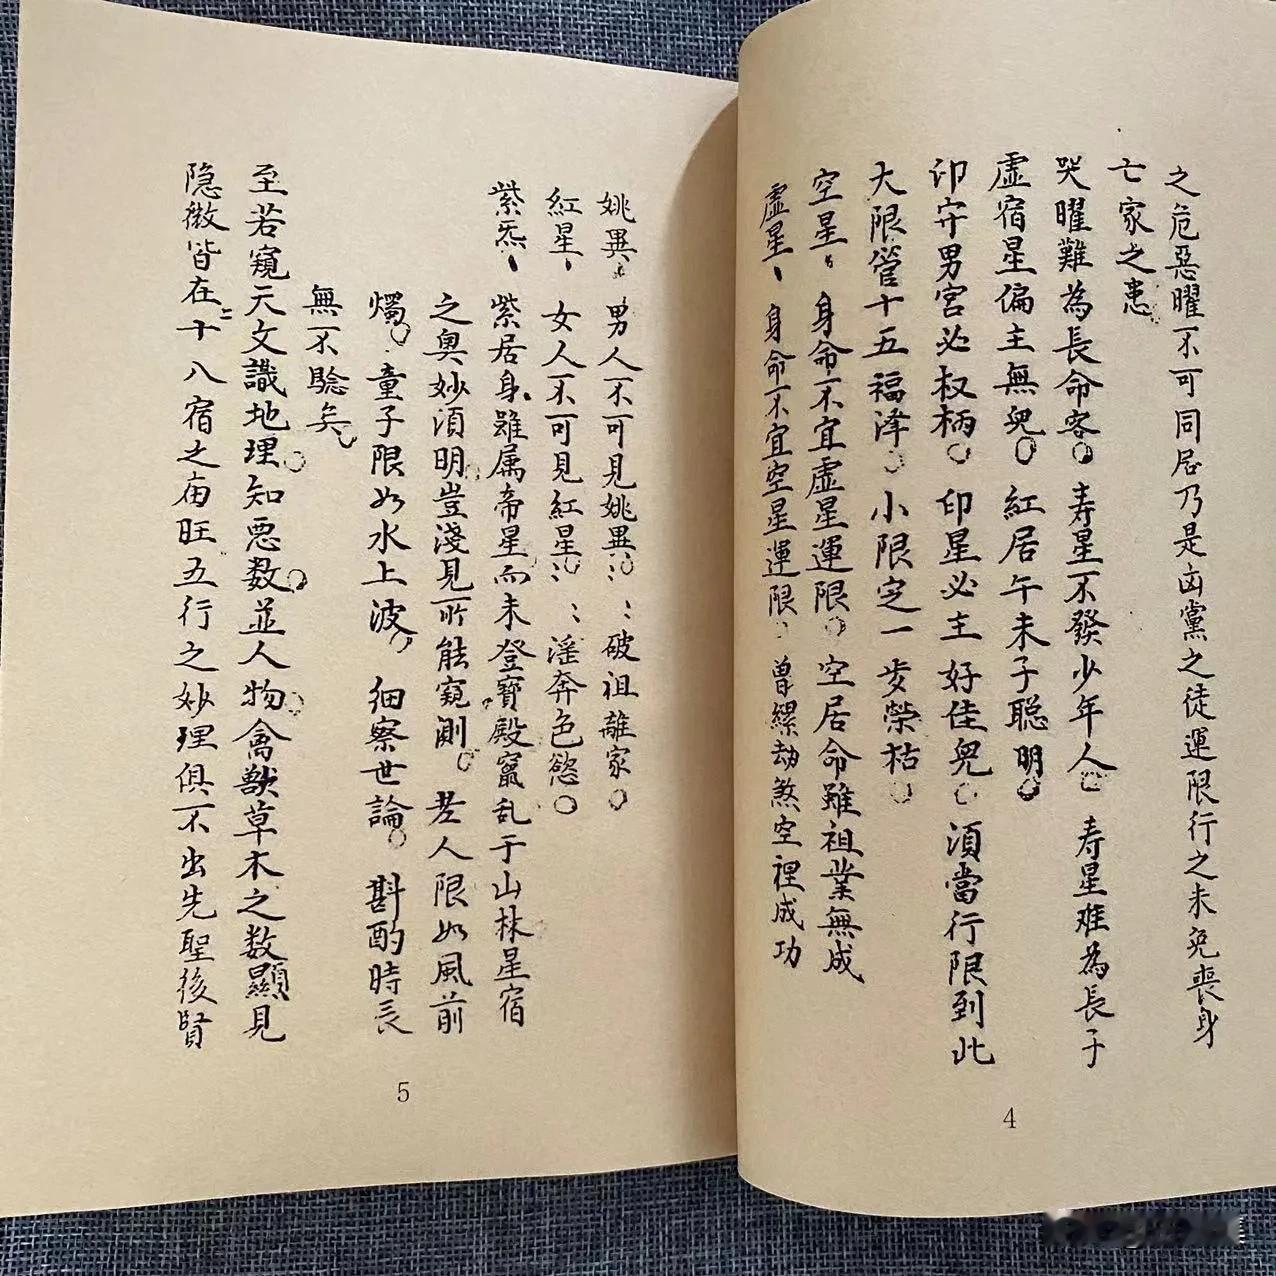 之危惡曜不可同居乃是凶黨之徒運限行之未免喪身
亡家之患
哭曜難為長命客。寿星不發少年人。寿星难為長子
虛宿星偏主無兒。紅居午未子聰明。
印守男宮必权柄。印星必主好佳兒。須當行限到此
大限管十五福泽。小限定一步榮枯。
空星、身命不宜虛星運限。空居命雖祖業無成
虛星、身命不宜空星運限。曾纆劫煞空裡成功
4
姚異、男人不可見姚異：：破祖離家。
紅星、女人不可見紅星：：淫奔色慾。
紫炁、紫居身雖属帝星而未登寶殿竄乱于山林星宿
之奥妙須明豈淺見所能窺測。老人限如風前
燭。童子限如水上波。细察世論。斟酌時長
無不驗矣。
至若窺天文識地理。知悪数。並人物禽獸草木之数顯見
隐微皆在二十八宿之庙旺五行之妙理俱不出先聖後賢
5